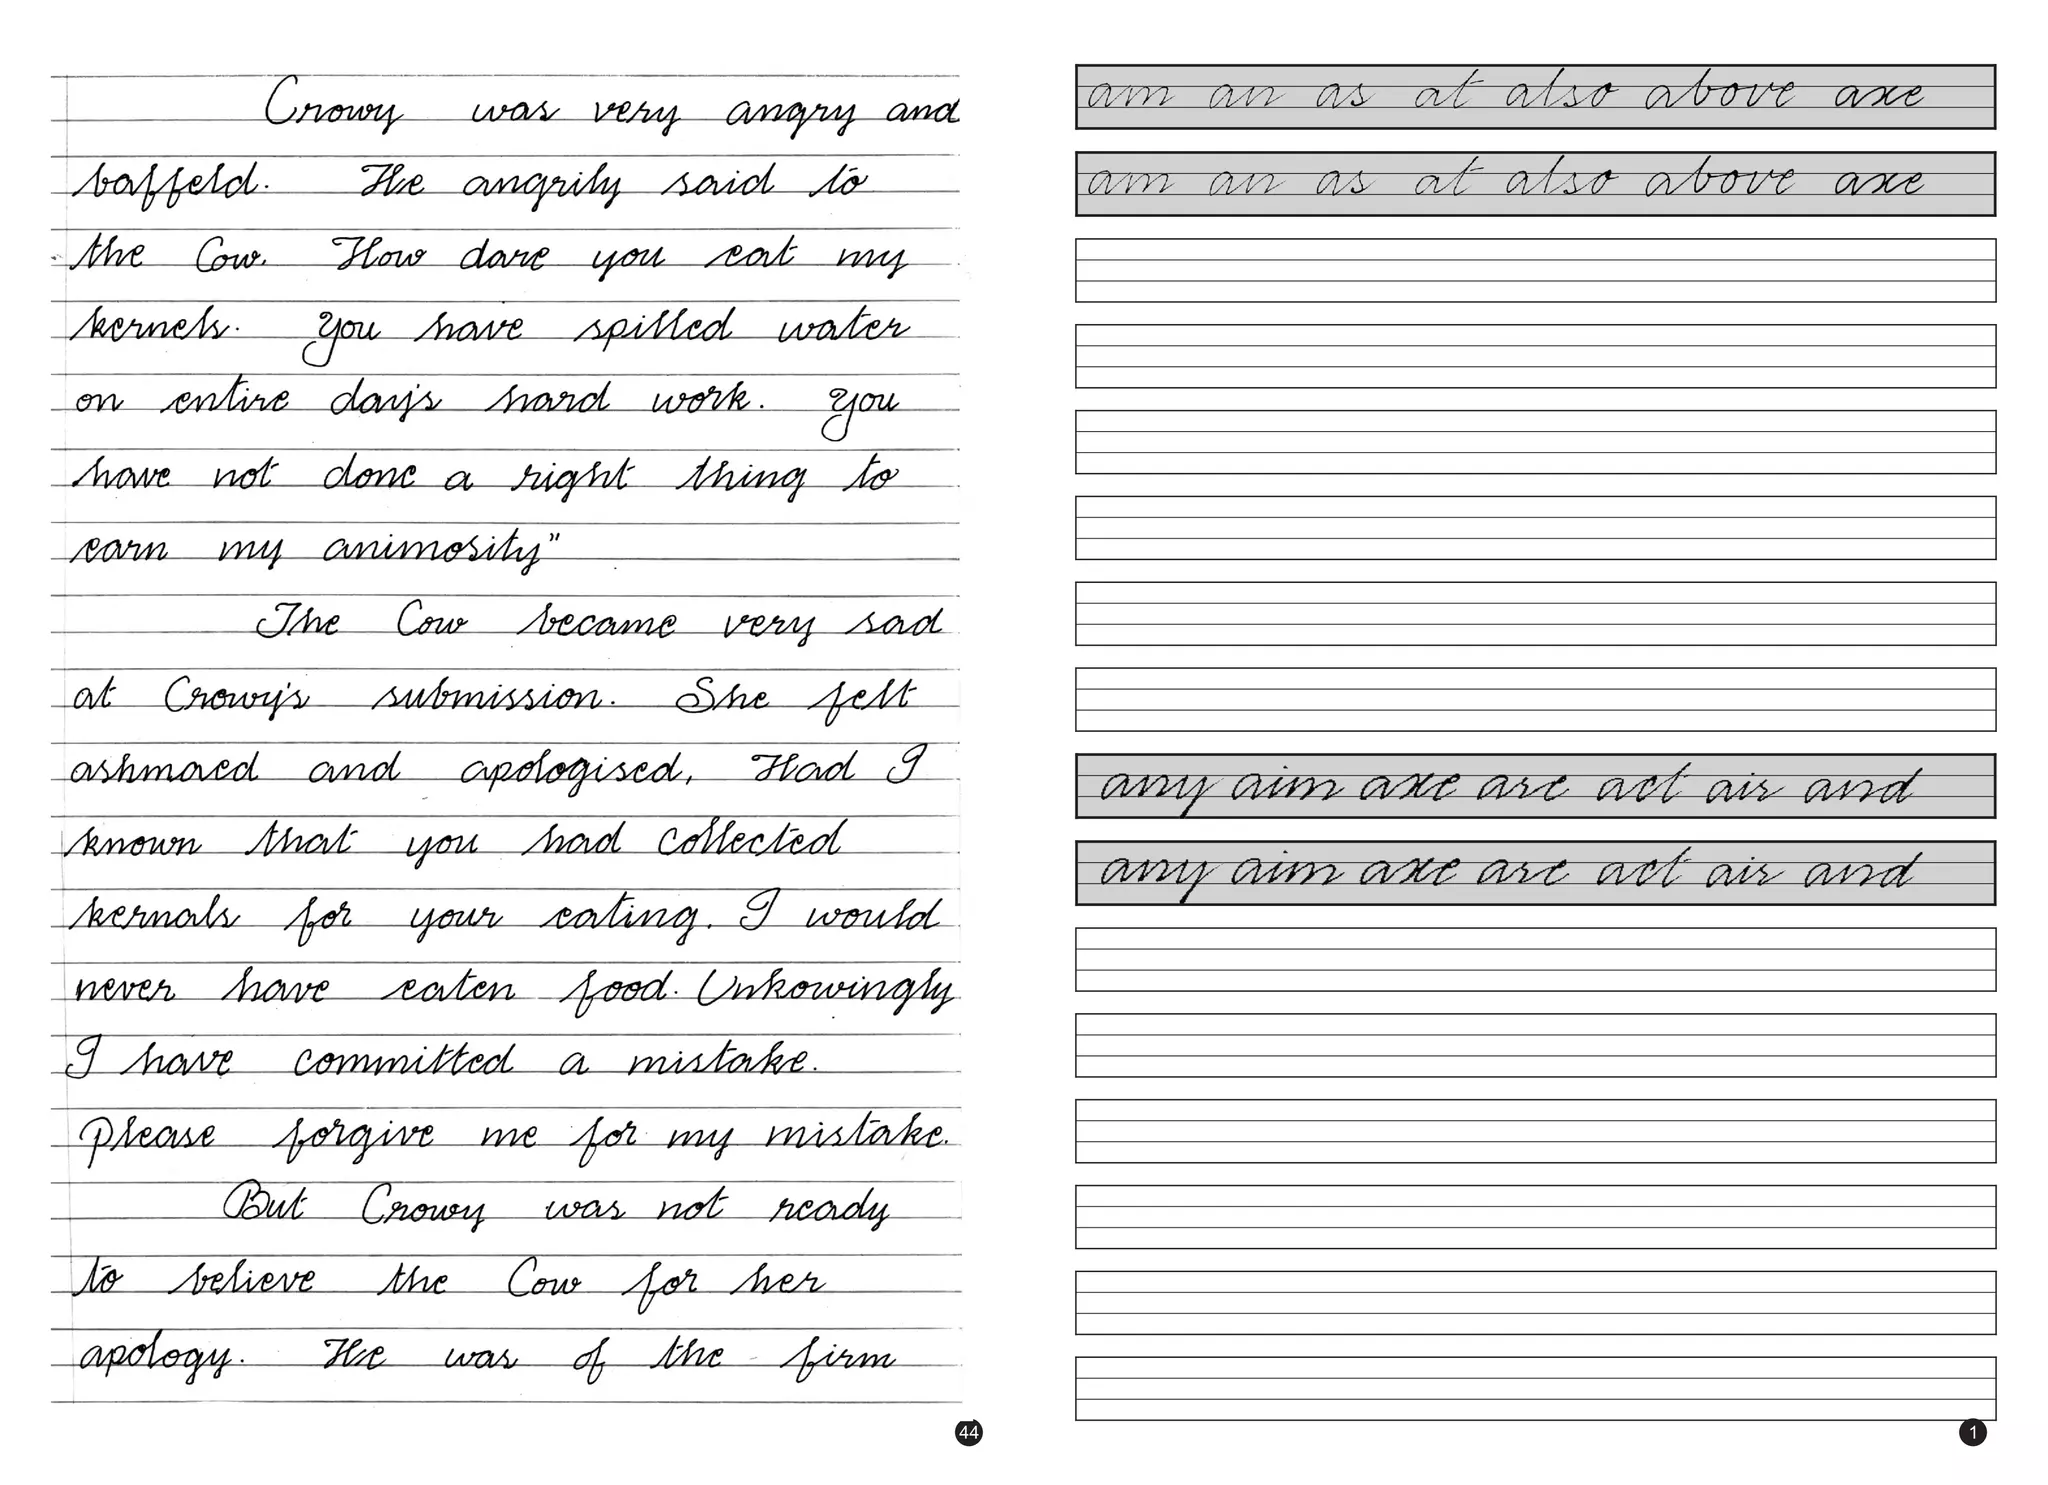 Crowy was very angry and
baffeld. He angrily said to
the Cow. How dare you eat my
kernels. You have spilled water
on entire day's hard work. You
have not done a right thing to
earn my animosity"
The Cow became very sad
at Crowy's submission. She felt
ashmaed and apologised, Had I
known that you had collected
kernals for your eating. I would
never have eaten food. Unkowingly
I have committed a mistake.
Please forgive me for my mistake.
But Crowy was not ready
to believe the Cow for her
apology. He was of the firm
44
am an as at also above axe
am an as at also above axe
any aim axe are act air and
any aim axe are act air and
1